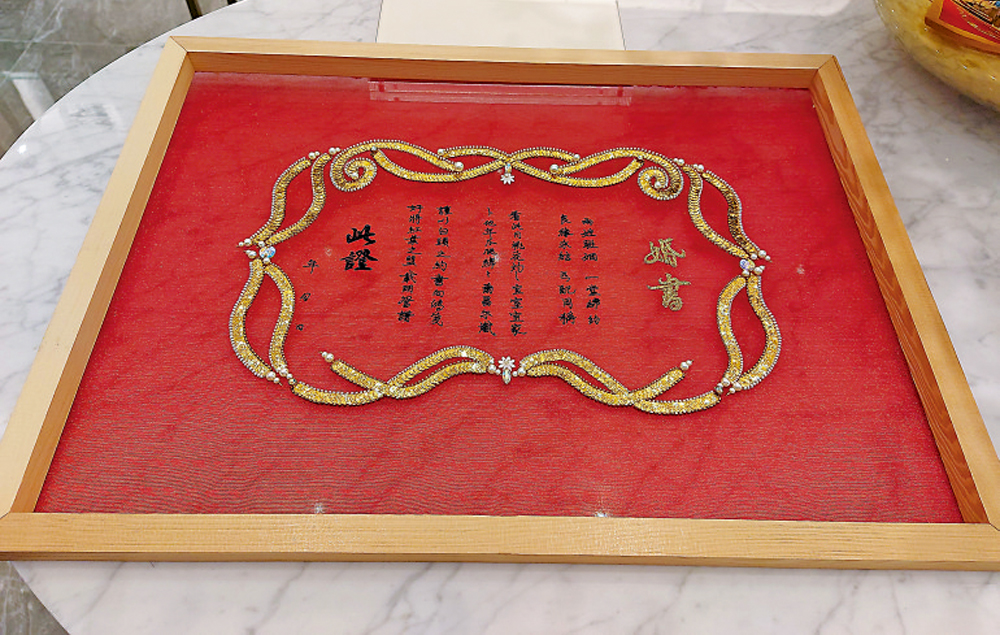 婚書
兩姓聯姻 一堂締約
良緣永結 匹配同稱
看此日桃花灼々宜室宜家
卜他年瓜瓞綿々爾昌爾熾
謹以白頭之約書向鴻箋
好將紅葉之盟載明鴛譜
此證
年 日